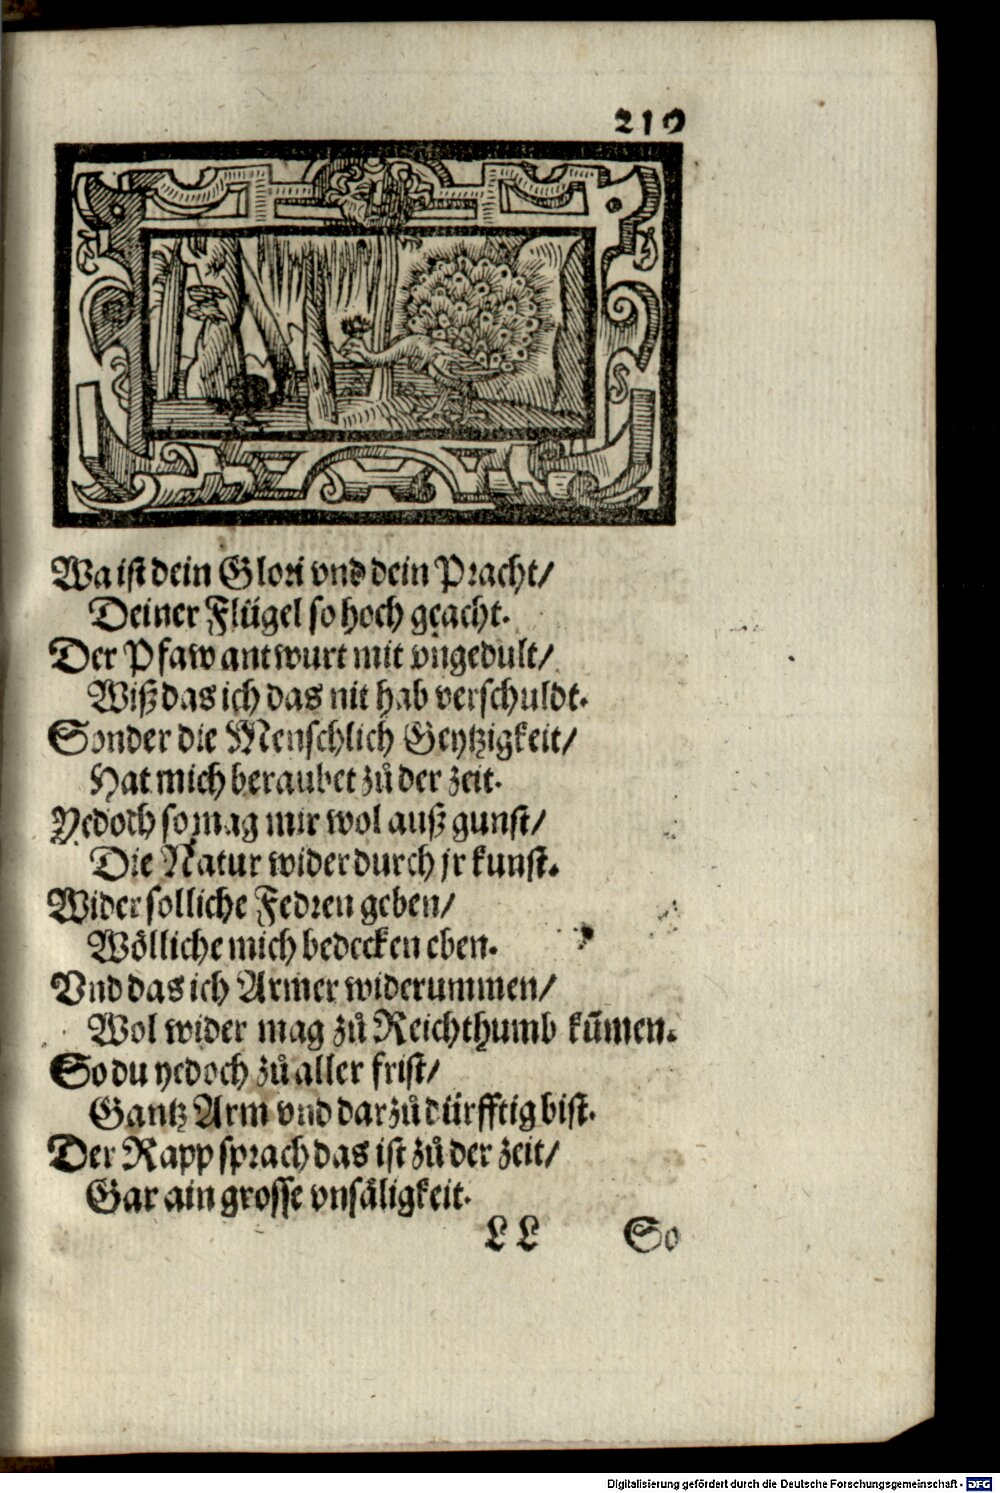 219
Wa ist dein Glori vnd dein Pracht/
Deiner Flügel so hoch geacht.
Der Pfaw antwurt mit vngedult/
Wiß das ich das nit hab verschuldt.
Sonder die Menschlich Geytzigkeit/
Hat mich beraubet zů der zeit.
Yedoch so mag mir wol auß gunst/
Die Natur wider durch jr kunst.
Wider solliche Fedren geben/
Wölliche mich bedecken eben.
Vnd das ich Armer widerummen/
Wol wider mag zů Reichthumb kum̃en.
So du yedoch zů aller frist/
Gantz Arm vnd darzů dürfftig bist.
Der Rapp sprach das ist zů der zeit/
Gar ain grosse vnsäligkeit.
LL So
Digitalisierung gefördert durch die Deutsche Forschungsgemeinschaft - DFG